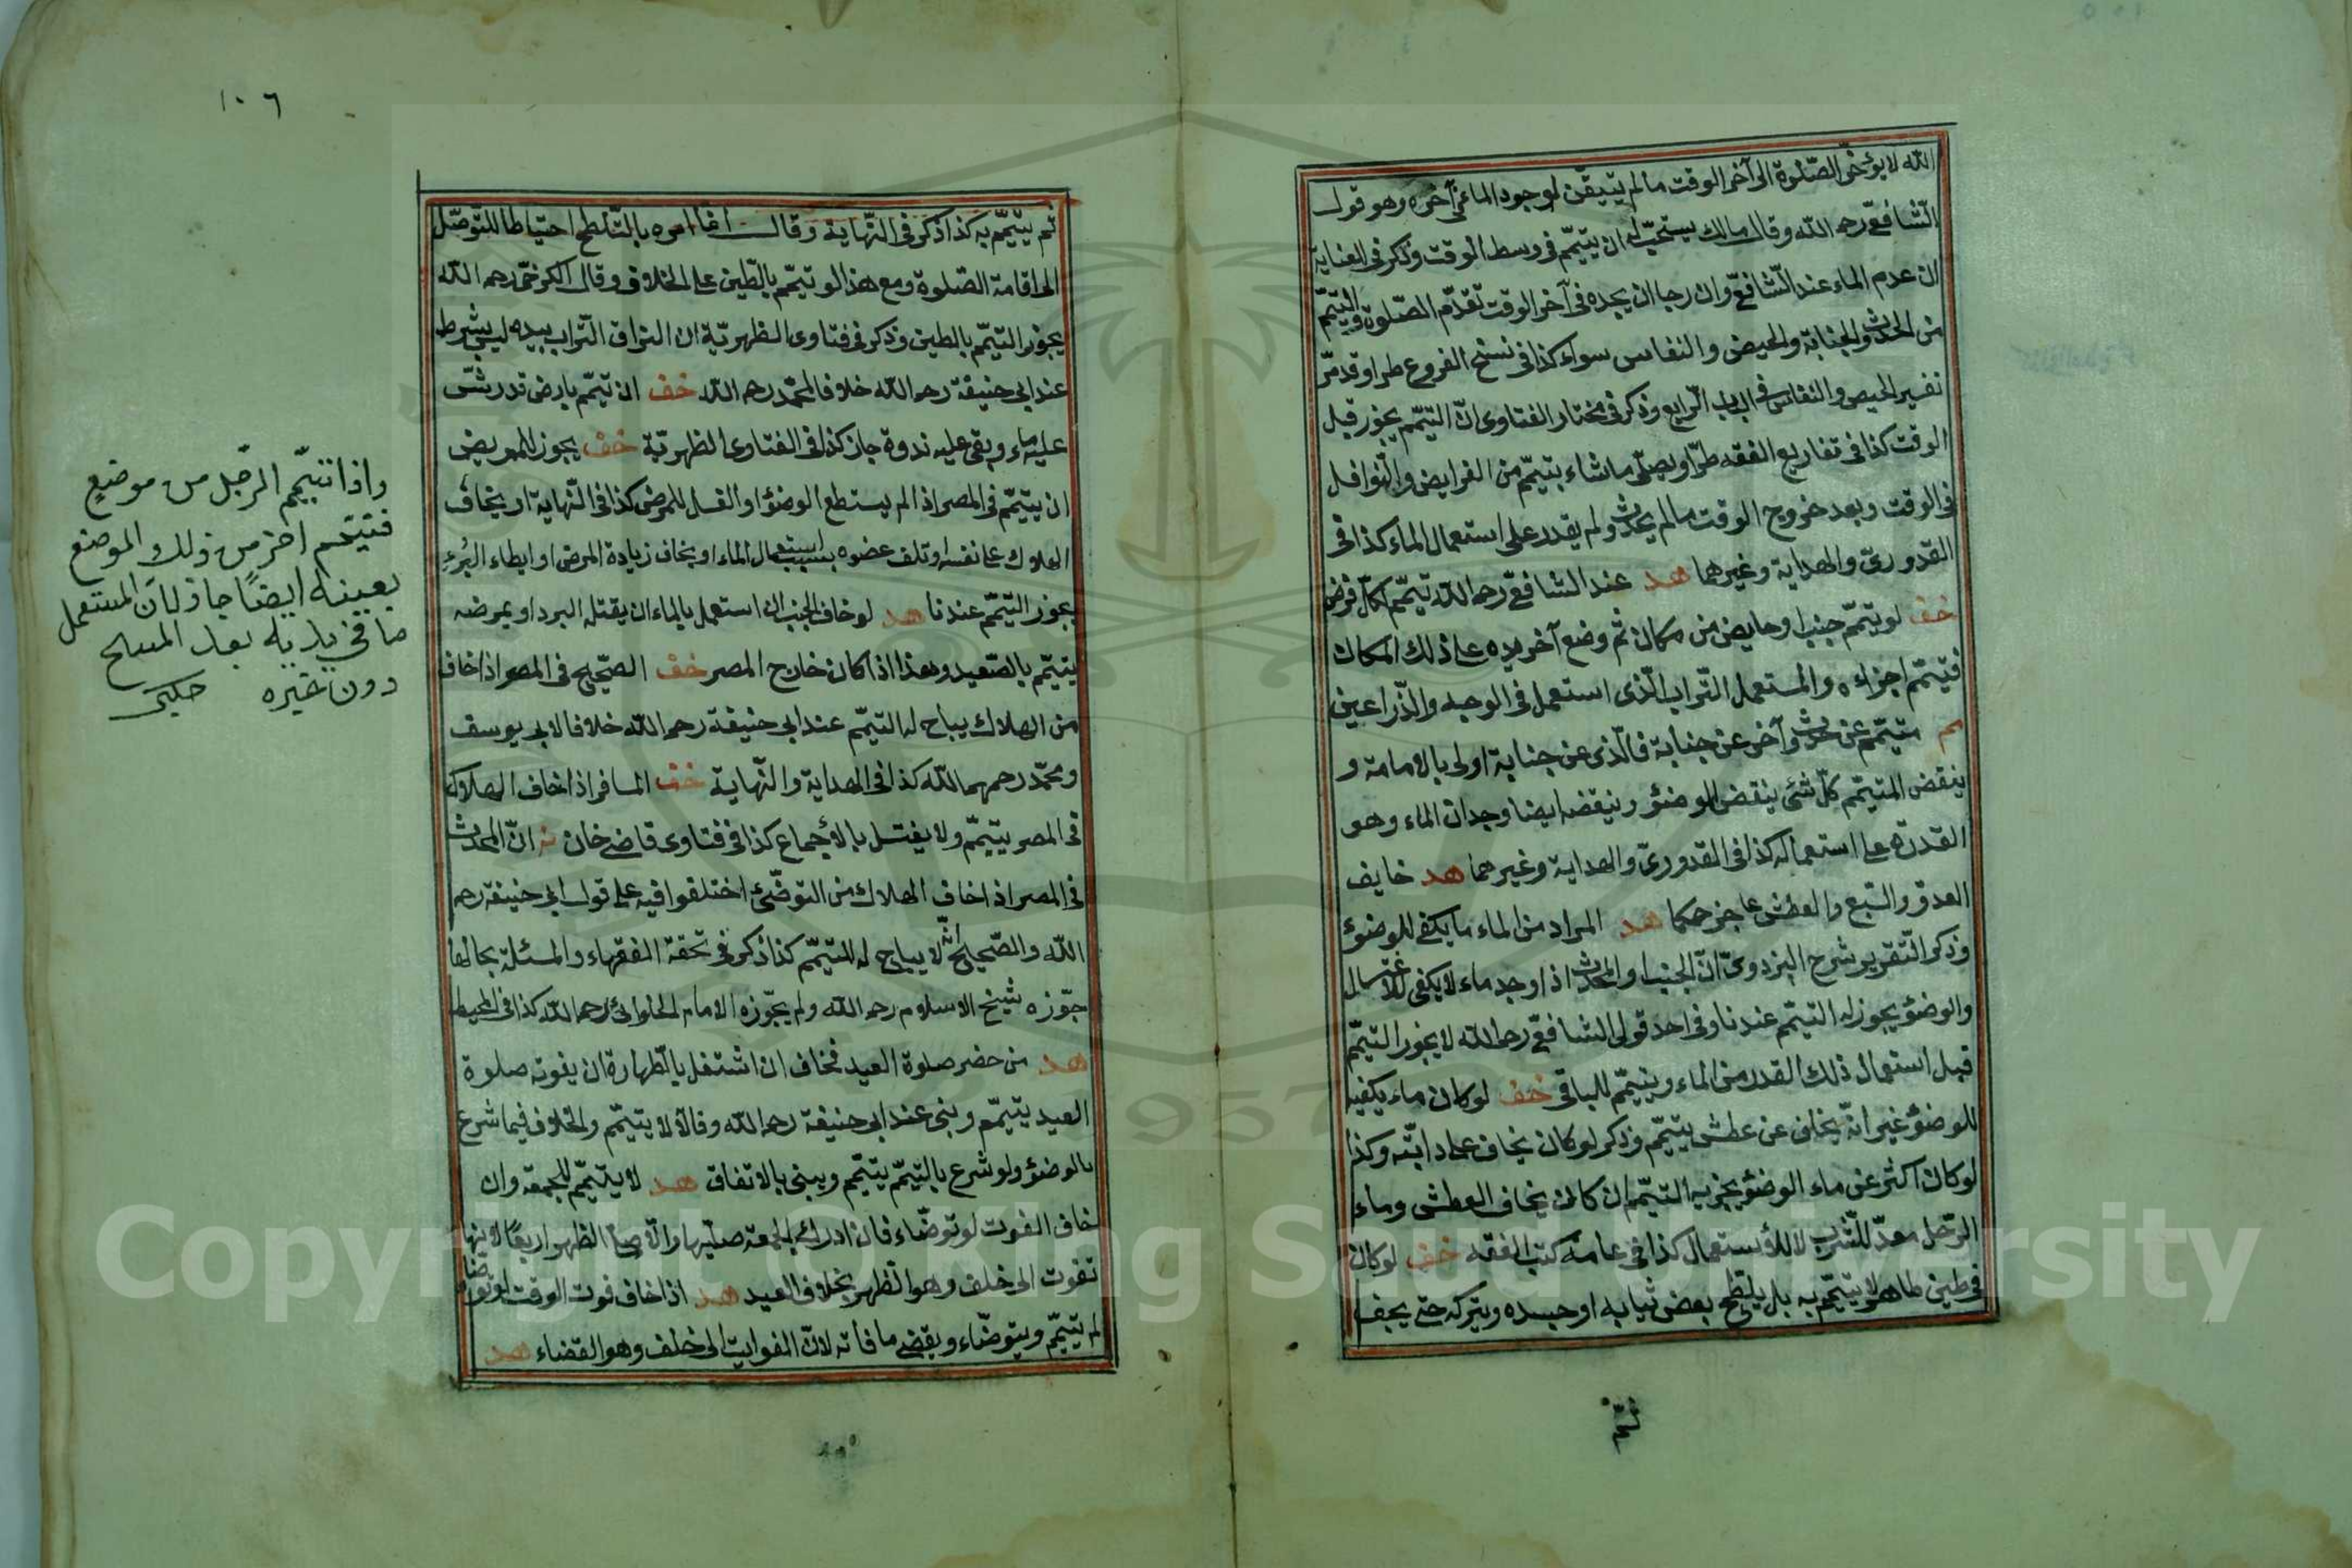 الله لا يؤخّر الصّلوة الى آخر الوقت ما لم يتيقّن لوجود الماء فى آخره وهو قول
الشّافعىّ رحمه الله وقال مالك يستحبّ له ان يتيمّم فى وسط الوقت وذكر فى العناية
ان عدم الماء عند الشّافعىّ وان رجا ان يجده فى آخر الوقت تقدّم الصّلوة والتيمّم
من الحدث والجنابة والحيض والنفاس سواء كذا فى نسخ الفروع طرا وقد مرّ
تفسير الحيض والنفاس فى الباب الرّابع وذكر فى مختار الفتاوى انّ التيمّم يجوز قبل
الوقت كذا فى تفاريع الفقه طرّا ويصلّى ما شاء بتيمّم من الفرايض والنّوافل
فى الوقت وبعد خروج الوقت ما لم يحدث ولم يقدر على استعمال الماء كذا فى
القدورىّ والهداية وغيرهما هد عند الشافعىّ رحمه الله تيمّم لكلّ فرض
خف لو تيمّم جنب او حايض من مكان ثم وضع آخر يده على ذلك المكان
فتيمّم اجزاءه والمستعمل التّراب الّذى استعمل فى الوجه والذّراعين
م متيمّم عن حدث وآخر عن جنابة فالّذى عن جنابة اولى بالامامة و
ينقض المتيمّم كلّ شئ ينقض الوضئو وينقضه ايضا وجدان الماء وهو
القدرة على استعماله كذا فى القدورىّ والهداية وغيرهما هد خايف
العدوّ والسّبع والعطش عاجز حكما هد المراد من الماء ما يكفى للوضئو
وذكر التّقرير شرح البزدوىّ انّ الجنب او المحدث اذا وجد ماء لا يكفى للاغتسال
والوضئو يجوز له التيمّم عندنا وفى احد قولى الشافعىّ رحمه الله لا يجوز التيمّم
قبل استعمال ذلك القدر من الماء ويتيمّم للباقى خف لو كان ماء يكفيه
للوضئو غير انّه يخاف عن عطش يتيمّم وذكر لو كان يخاف على دابّته وكذا
لو كان اكثر عن ماء الوضئو يجزيه التيمّم ان كان يخاف العطش وماء
الرّجل معدّ للشّرب لا للأستعمال كذا فى عامة كتب الفقه خف لو كان
فى طين طاهر لا يتيمّم به بل يلطّخ بعض ثيابه او جسده ويتركه حتى يجف
ثمّ
١٠٦
ثم يتيمّم به كذا ذكر فى النّهاية وقال انما امره بالتّلطخ احتياطا للتّوصّل
الى اقامة الصّلوة ومع هذا لو تيمّم بالطين على الخلاف وقال الكرخىّ رحمه الله
يجوز التيمّم بالطين وذكر فى فتاوى الظهريّة ان التزاق التّراب بيده ليس بشرط
عند ابى حنيفة رحمه الله خلافا لمحمّد رحمه الله خف ان تيمّم بارض قد رشّ
عليه ماء وبقى عليه ندوة جاز كذا فى الفتاوى الظهريّة خف يجوز للمريض
ان يتيمّم فى المصر اذا لم يستطع الوضئو او الغسل للمرض كذا فى النّهاية او يخاف
الهلاك على نفسه او تلف عضوه بسبب استعمال الماء او يخاف زيادة المرض او ابطاء البُرء
يجوز التيمّم عندنا هد لو خاف الجنب ان استعمل بالماء ان يقتله البرد او يمرضه
يتيمّم بالصّعيد وهذا اذا كان خارج المصر خف الصّحيح فى المصر اذا خاف
من الهلاك يباح له التيمّم عند ابى حنيفة رحمه الله خلافا لابى يوسف
ومحمّد رحمهما الله كذا فى الهداية والنّهاية خف المسافر اذا خاف الهلاك
فى المصر يتيمّم ولا يغتسل بالأجماع كذا فى فتاوى قاضى خان انّ المحدث
فى المصر اذا خاف الهلاك من التوضّئ اختلفوا فيه على قول ابى حنيفة رحمه
الله والصّحيح انّه لا يباح له التيمّم كذا ذكر فى تحفة الفقهاء والمسئلة بحالها
جوّزه شيخ الاسلام رحمه الله ولم يجّوزه الامام الحلوانى رحمه الله كذا فى المحيط
هد من حضر صلوة العيد فخاف ان اشتغل بالطهارة ان يفوته صلوة
العيد يتيمّم وبنى عند ابى حنيفة رحمه الله وقالا لا يتيمّم والخلاف فيما شرع
بالوضئو ولو شرع بالتيمّم يتيمّم ويبنى بالاتفاق هد لا يتيمّم للجمعة وان
خاف الفوت لو توضّاء فان ادرك الجمعة صلّيها والّا صلّى الظهر اربعًا لانها
تفوت الى خلف وهو الظهر بخلاف العيد هد اذا خاف فوت الوقت لو توضّاء
لم يتيمّم ويتوضّاء ويقضى ما فاته لانّ الفوايت الى خلف وهو القضاء هد
واذا تيمّم الرّجل من موضعٍ
فتيمّم اخر من ذلك الموضع
بعينه ايضًا جاز لانّ المستعمل
ما فى يديه بعد المسح
دون غيره حلبى